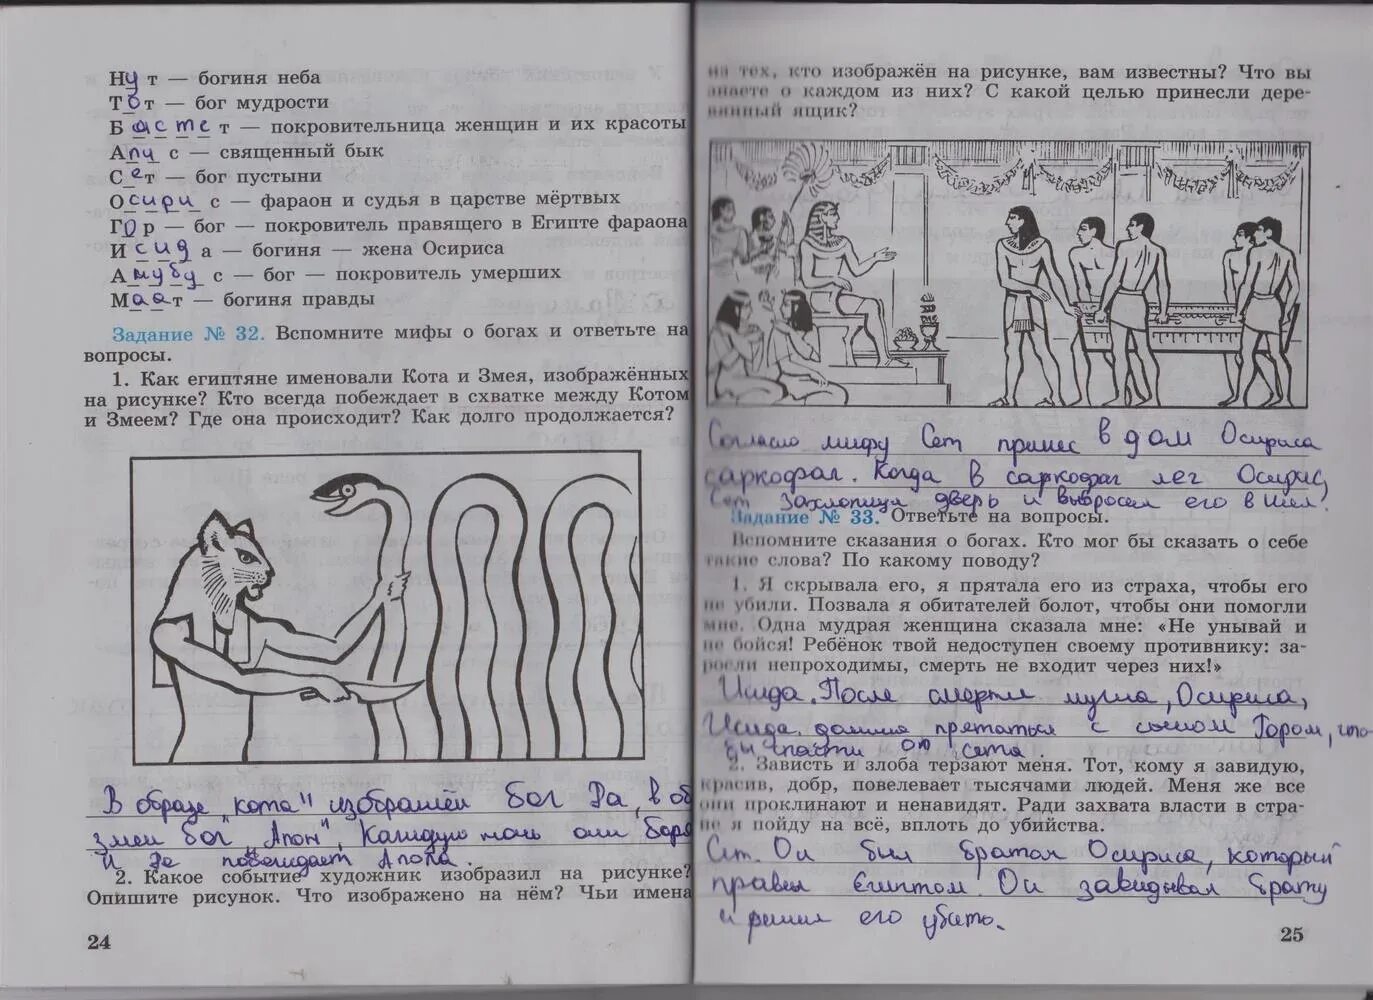 Нут — богиня неба
Тот — бог мудрости
Бастет — покровительница женщин и их красоты
Апис — священный бык
Сет — бог пустыни
Осирис — фараон и судья в царстве мёртвых
Гор — бог — покровитель правящего в Египте фараона
Исида — богиня — жена Осириса
Анубус — бог — покровитель умерших
Маат — богиня правды
Задание № 32. Вспомните мифы о богах и ответьте на
вопросы.
1. Как египтяне именовали Кота и Змея, изображённых
на рисунке? Кто всегда побеждает в схватке между Котом
и Змеем? Где она происходит? Как долго продолжается?
В образе "кота" изображён бог Ра, в об
змеи бог "Апоп". Каждую ночь они боря
и Ра побеждает Апопа.
2. Какое событие художник изобразил на рисунке?
Опишите рисунок. Что изображено на нём? Чьи имена
24
из тех, кто изображён на рисунке, вам известны? Что вы
знаете о каждом из них? С какой целью принесли дере-
вянный ящик?
Согласно мифу Сет принес в дом Осириса
саркофаг. Когда в саркофаг лег Осирис,
Сет захлопнул дверь и выбросил его в Нил!
Задание № 33. Ответьте на вопросы.
Вспомните сказания о богах. Кто мог бы сказать о себе
такие слова? По какому поводу?
1. Я скрывала его, я прятала его из страха, чтобы его
не убили. Позвала я обитателей болот, чтобы они помогли
мне. Одна мудрая женщина сказала мне: «Не унывай и
не бойся! Ребёнок твой недоступен своему противнику: за-
росли непроходимы, смерть не входит через них!»
Исида. После смерти мужа, Осириса,
Исида должна прятаться с сыном Гором, что
бы спасти от Сета.
2. Зависть и злоба терзают меня. Тот, кому я завидую,
красив, добр, повелевает тысячами людей. Меня же все
они проклинают и ненавидят. Ради захвата власти в стра-
не я пойду на всё, вплоть до убийства.
Сет. Он был братом Осириса, который
правил Египтом. Он завидывал брату
и решил его убить.
25